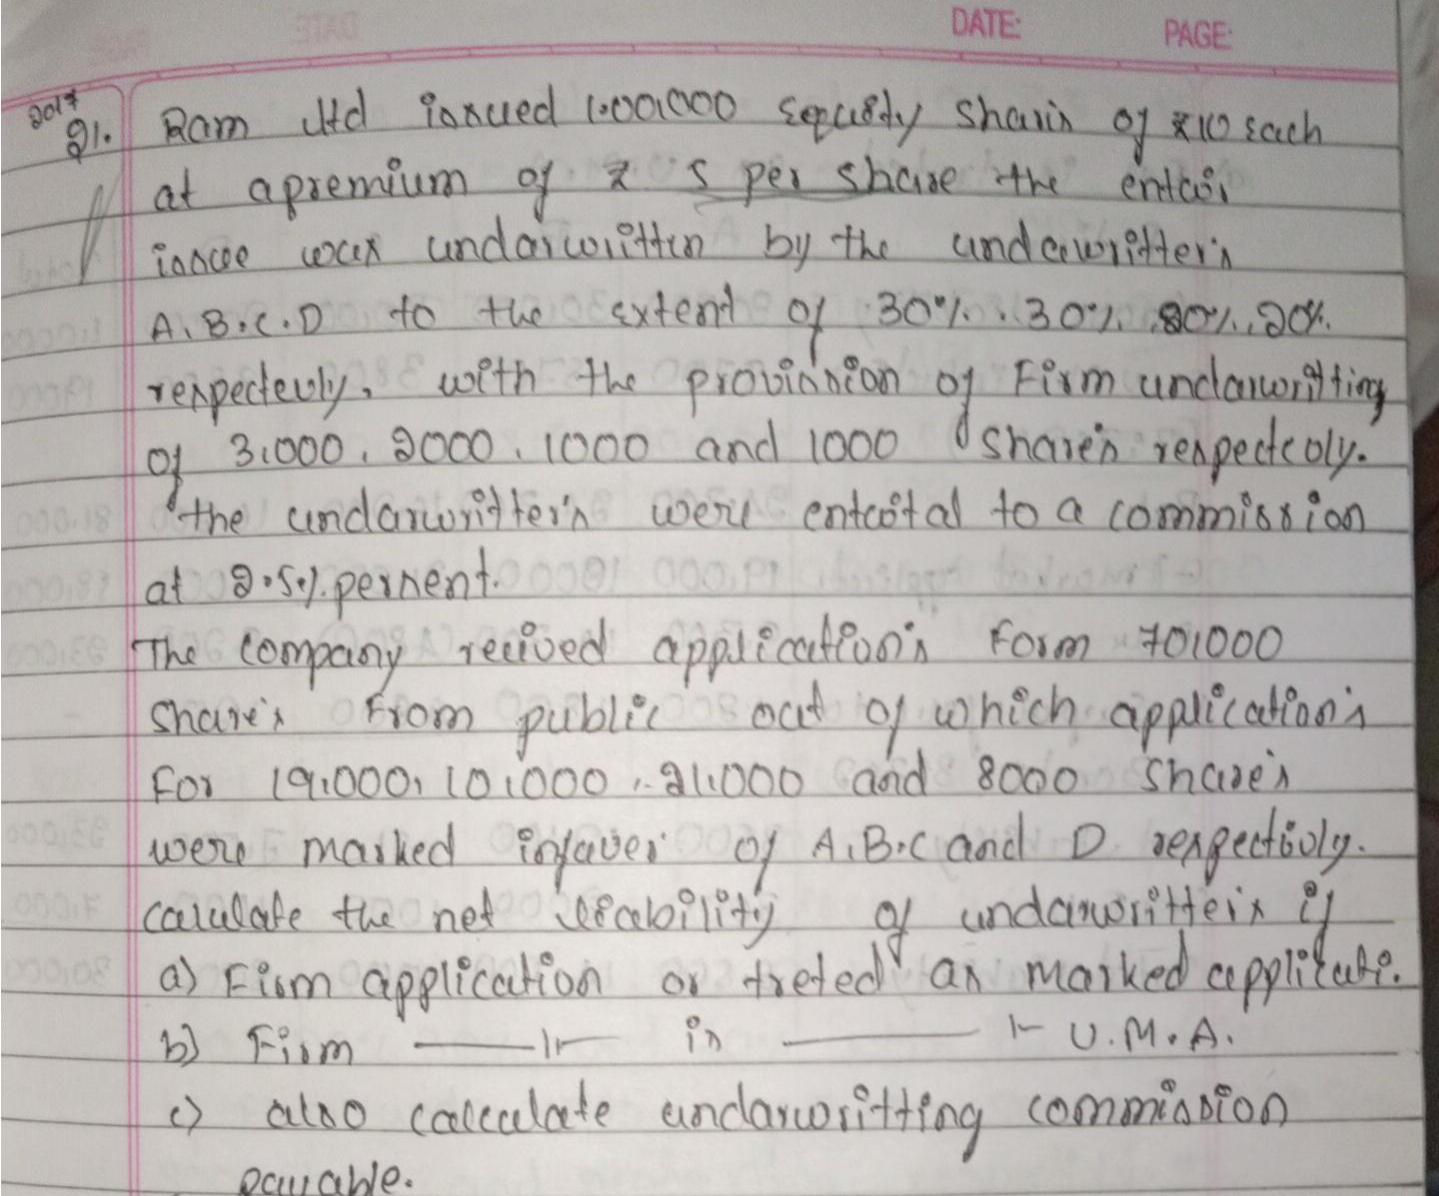 DATE: PAGE:
2017
21. Ram Ltd issued 1,00,000 Equity Shares of ₹10 each
at a premium of ₹ 5 per share the entair
issuee was undarwritten by the undewritter's
A, B, C, D to the extent of 30%, 30%, 20%, 20%.
respectevly, with the provission of Firm undarwritting
of 3,000, 2000, 1000 and 1000 share's respectcoly.
the undarwritter's were entcital to a commission
at 2.5% pernent.
The company recived application's Form 70,000
share's From public out of which application's
For 19,000, 10,000, 21,000 and 8000 share's
were marked infaver of A, B, C and D respectivly.
calculate the net liability of undarwritter's if
a) Firm application or treted as marked applicati.
b) Firm —〃— is —〃— U.M.A.
c) also calculate undarwritting commission
payable.